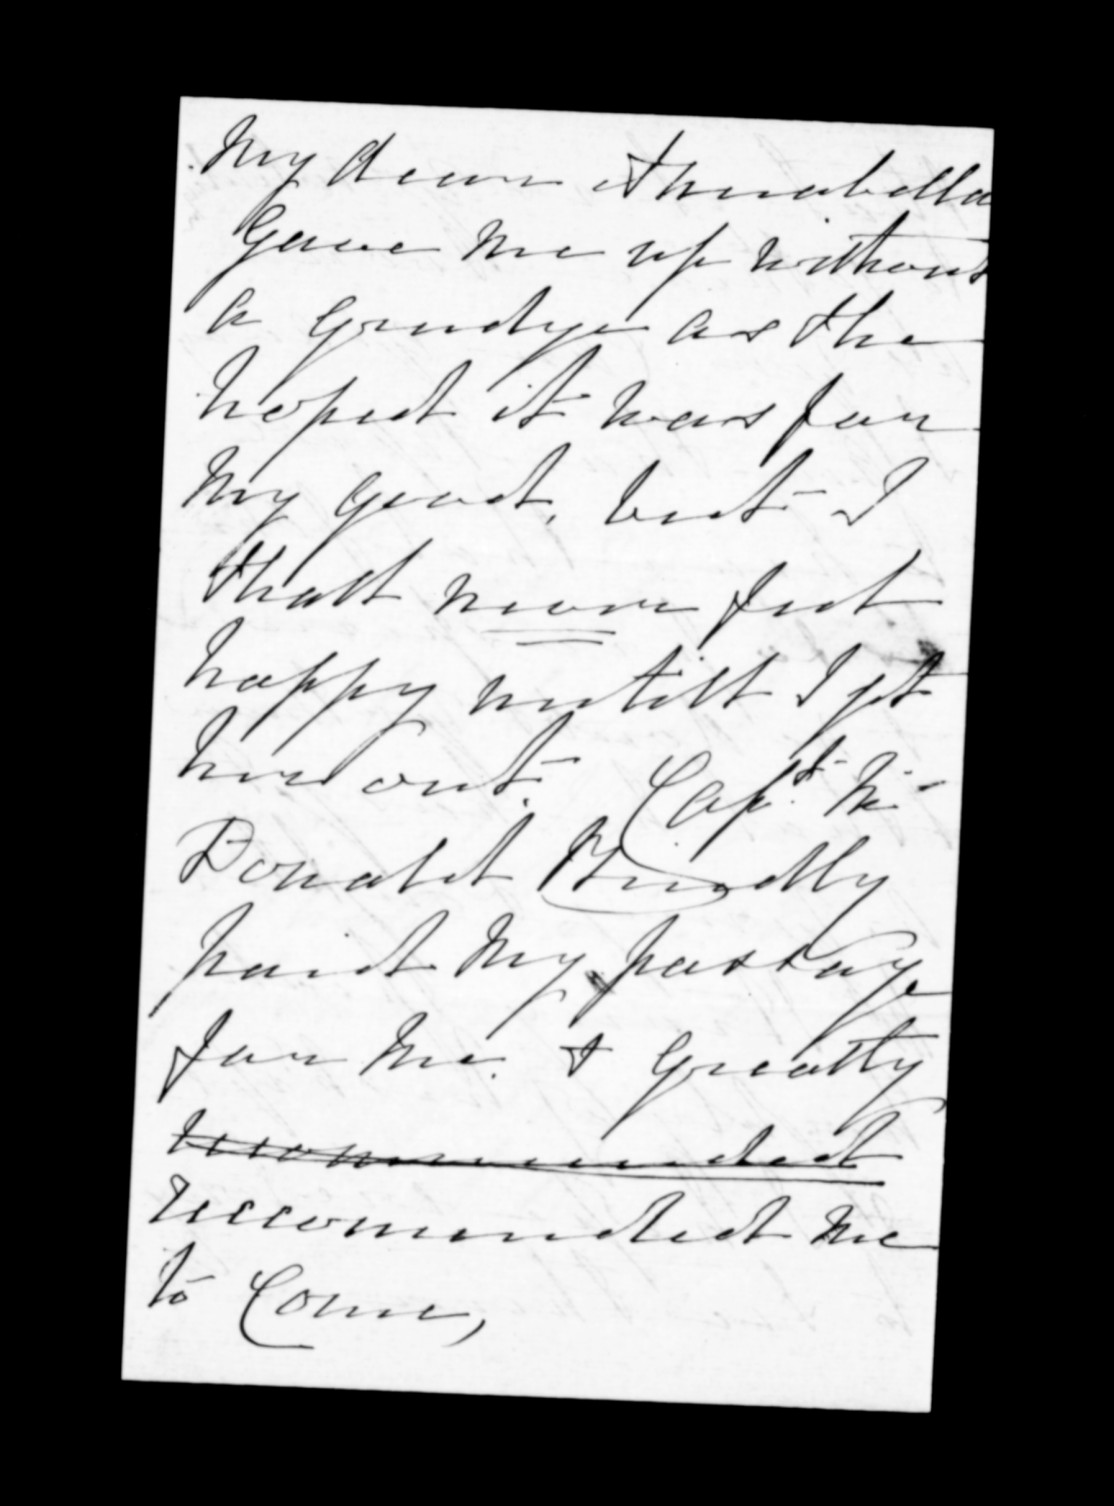 My dear Annabella
gave me up without
a grudge as she
hoped it was for
my good, but I
shall never feel
happy untill I get
her out. Capt. Mc
Donald Kindly
paid my passage
for me. & greatly
reccommended
reccomended me
to Come,